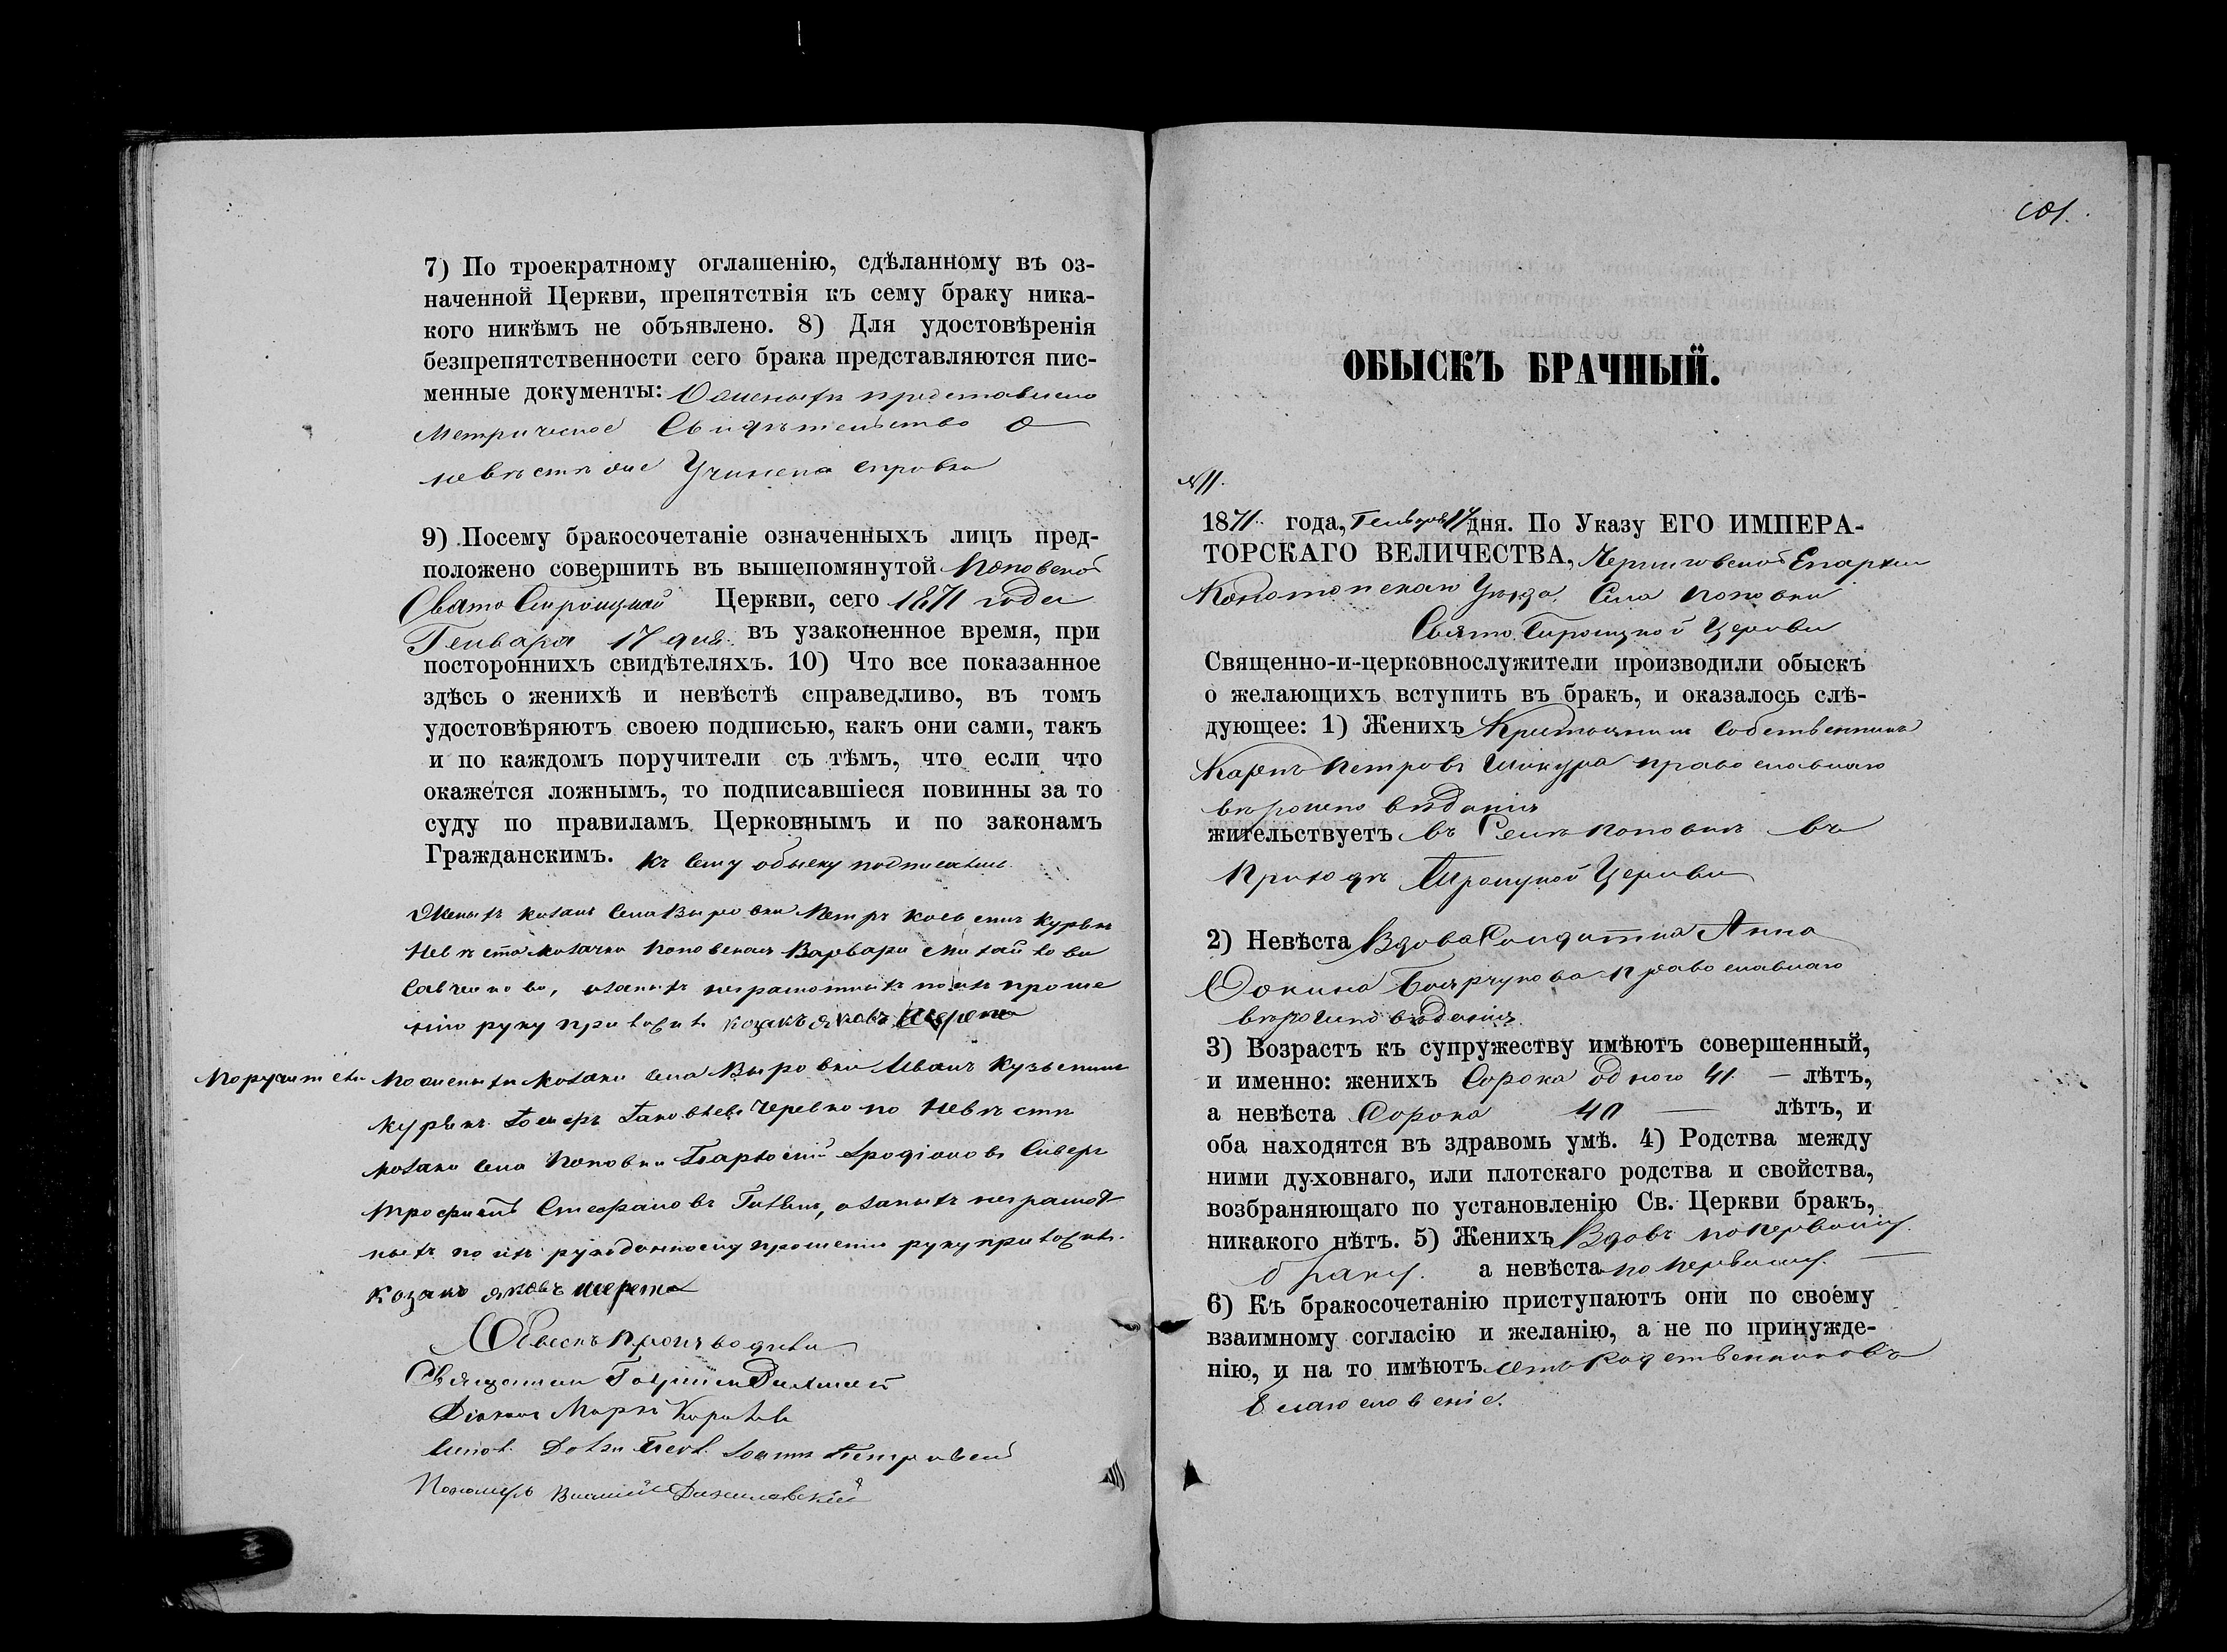 7) По троекратному оглашенію, сдѣланному въ оз-
наченной Церкви, препятствія къ сему браку ника-
кого никѣмъ не объявлено. 8) Для удостовѣренія
безпрепятственности сего брака представляются пис-
менные документы: О женихѣ представлено
Метрическое Свидѣтельство о
невѣстѣ же Учинена справка
9) Посему бракосочетаніе означенныхъ лицъ пред-
положено совершить въ вышепомянутой Поповской
Свято Троицкой Церкви, сего 1871 года
Генваря 17 дня въ узаконенное время, при
постороннихъ свидѣтеляхъ. 10) Что все показанное
здѣсь о женихѣ и невѣстѣ справедливо, въ томъ
удостовѣряютъ своею подписью, какъ они сами, такъ
и по каждомъ поручители съ тѣмъ, что если что
окажется ложнымъ, то подписавшіеся повинны за то
суду по правиламъ Церковнымъ и по законамъ
Гражданскимъ. къ сему обыску подписались
Женихъ козакъ села Выровки Петръ
Невѣста козачка Поповская Варвара Михайлова
а за нихъ неграмотныхъ по ихъ проше
нію руку приложилъ козакъ яковъ шерета
Поручители По женихѣ козаки села Выровки Иванъ Кузьминъ
Яковлевъ Черевко по Невѣстѣ
козаки села Поповки
Трофимъ Стефановъ а за нихъ неграмот
ныхъ по ихъ рукоданному прошенію руку приложилъ
козакъ яковъ шерета
Обыскъ производили
Священникъ
Діаконъ Маркъ
Іоаннъ Петровскій
Пономарь Василій
101.
ОБЫСКЪ БРАЧНЫЙ.
№ 11.
1871 года, Генваря 17 дня. По Указу ЕГО ИМПЕРА-
ТОРСКАГО ВЕЛИЧЕСТВА, Черниговской Епархіи
Конотопскаго Уѣзда, Села Поповки
Свято Троицкой Церкви
Священно-и-церковнослужители производили обыскъ
о желающихъ вступить въ бракъ, и оказалось слѣ-
дующее: 1) Женихъ Крестьянинъ Собственникъ
Карпъ Петровъ Шинкура православнаго
вѣроисповѣданія
жительствуетъ въ Селѣ Поповкѣ въ
Приходѣ Троицкой Церкви
2) Невѣста Вдова Солдатка Анна
православнаго
вѣроисповѣданія
3) Возрастъ къ супружеству имѣютъ совершенный,
и именно: женихъ Сорока одного 41 — лѣтъ,
а невѣста Сорока 40 — лѣтъ, и
оба находятся въ здравомъ умѣ. 4) Родства между
ними духовнаго, или плотскаго родства и свойства,
возбраняющаго по установленію Св. Церкви бракъ,
никакого нѣтъ. 5) Женихъ Вдовъ по первому
браку. а невѣста по первому. —
6) Къ бракосочетанію приступаютъ они по своему
взаимному согласію и желанію, а не по принужде-
нію, и на то имѣютъ отъ Родственниковъ
Благословеніе.